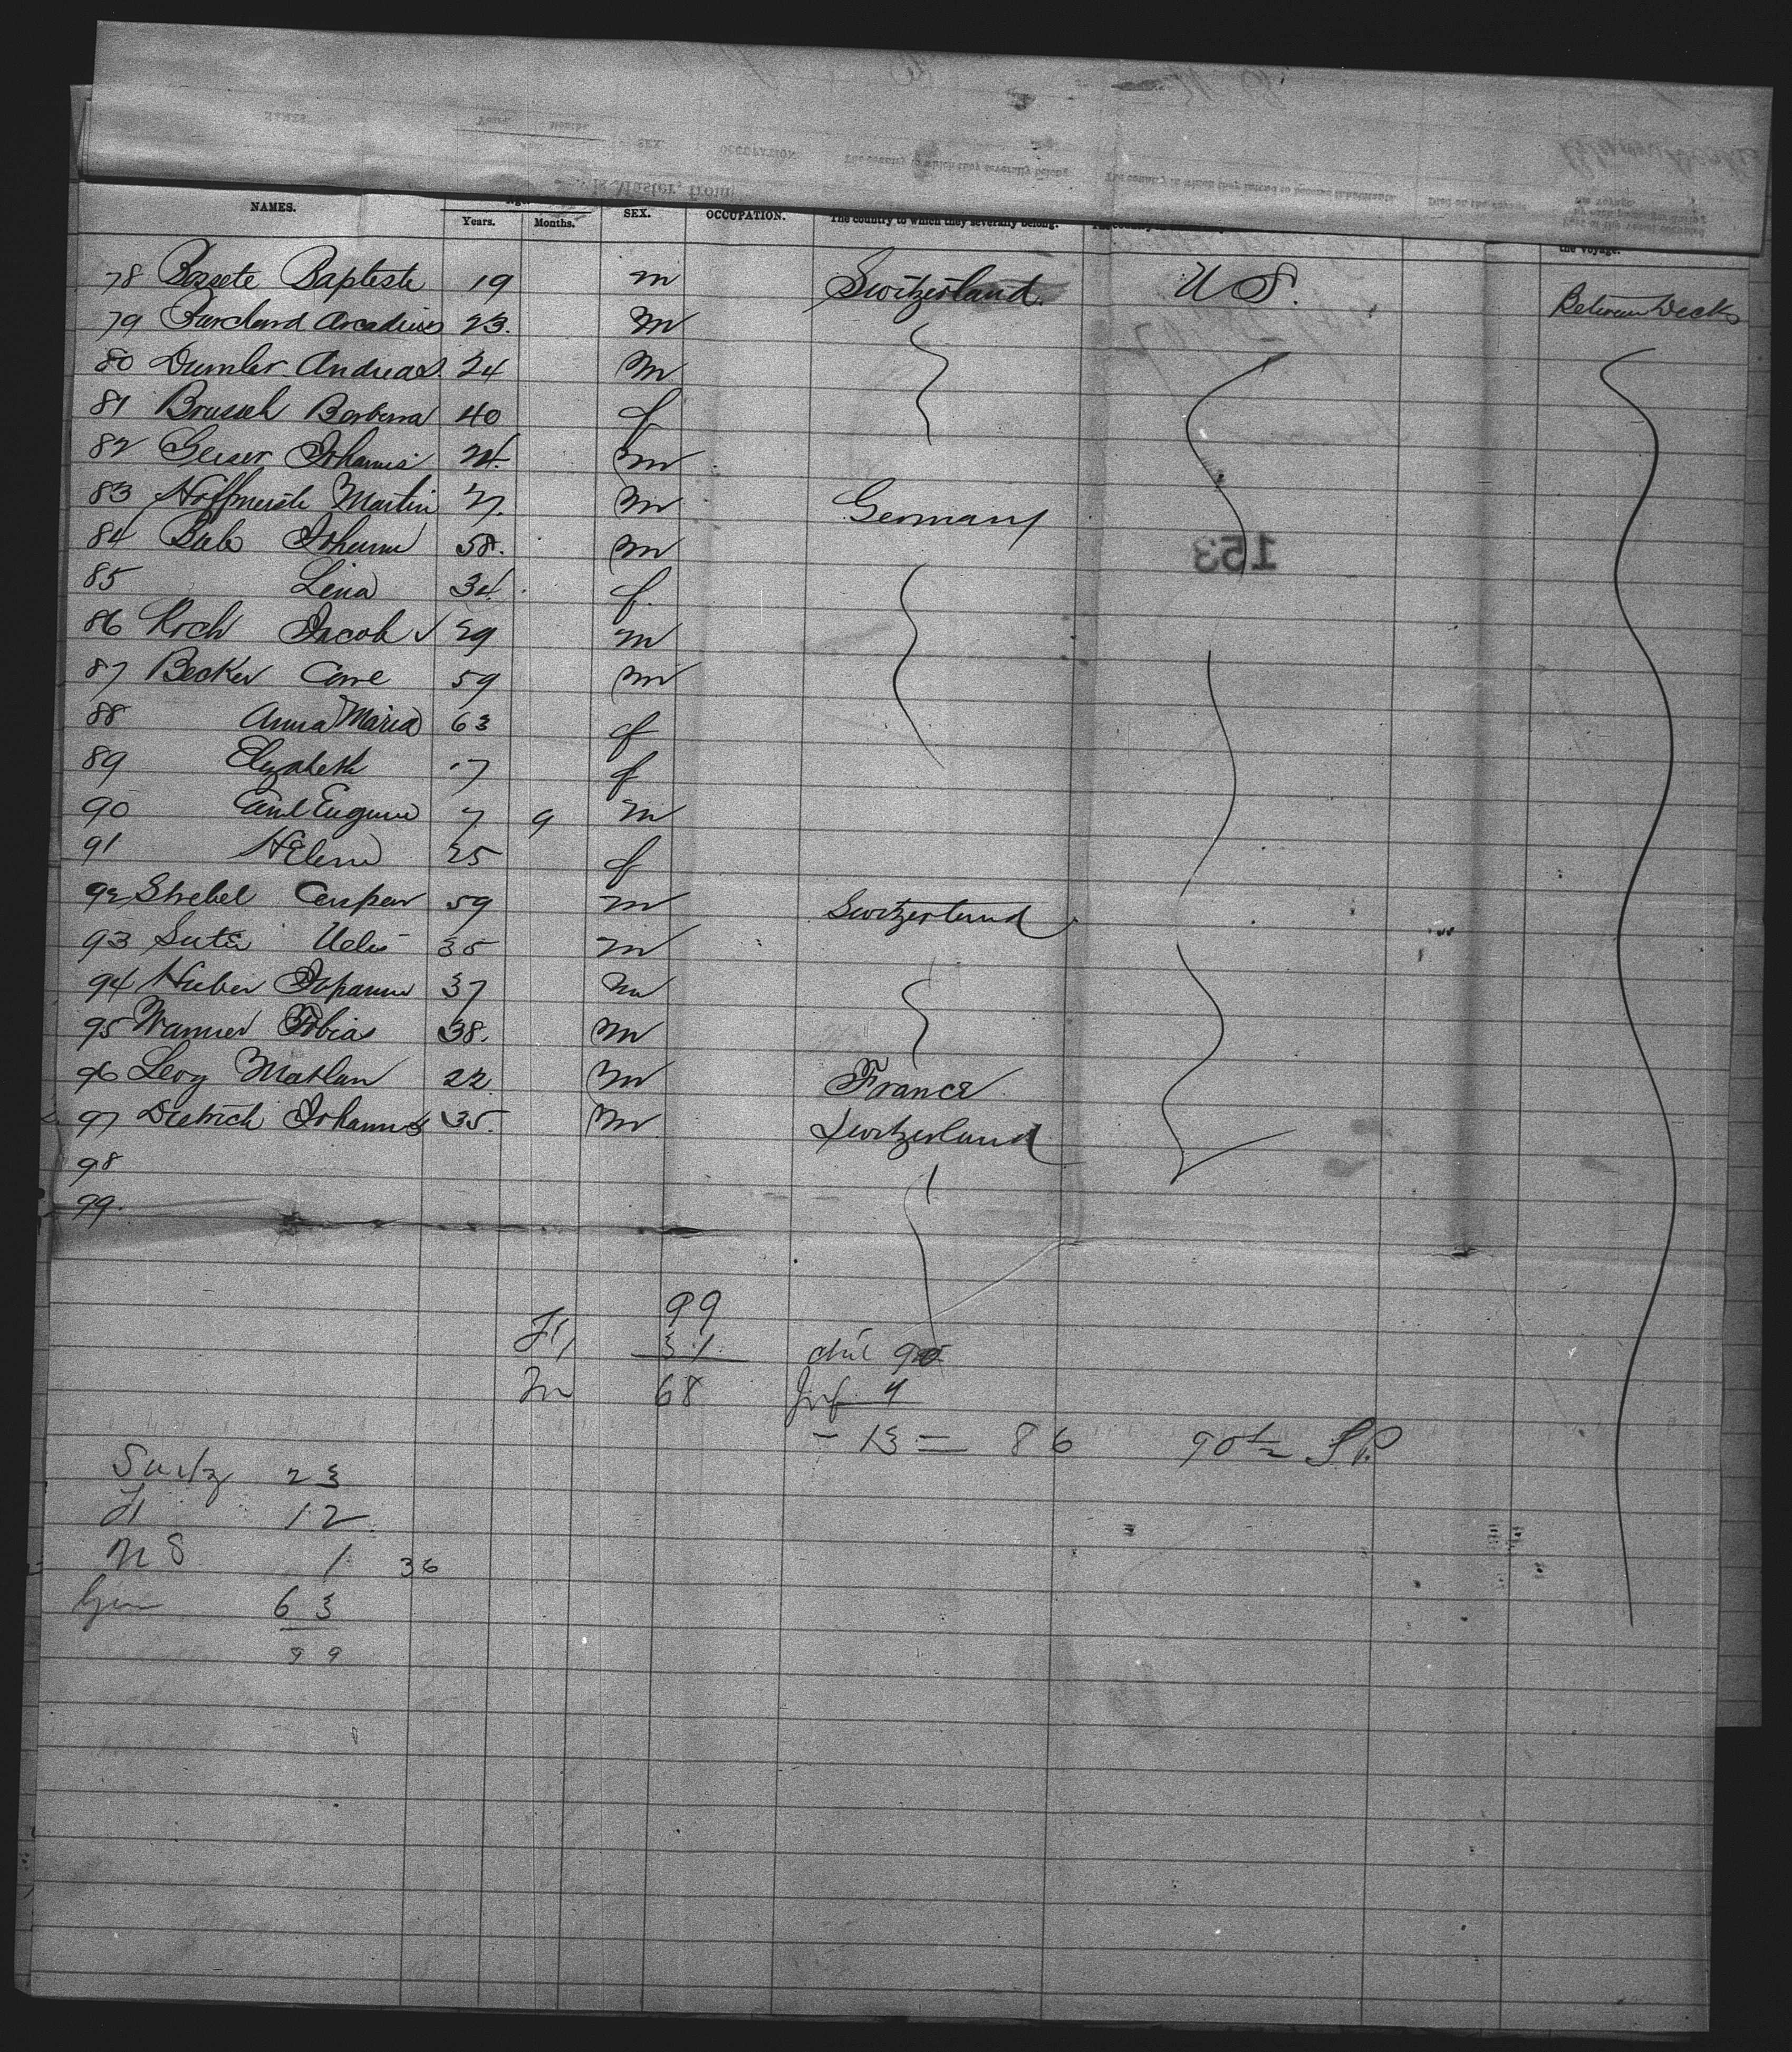 NAMES. Years. Months. SEX. OCCUPATION. The country to which they severally belong.
the voyage.
78 Bossete Baptiste 19 m Switzerland U S. Between Decks
79 Arcadius 23. m
80 Dumler Andreas. 24 m
81 Brusch Barberra 40 f
82 Geiser Johannis 24. m
83 Martin 27. m Germany
84 Johann 58. m
85 Lina 34. f.
86 Koch Jacob √ 29 m
87 Becker Carl 59 m
88 Anna Maria 63 f
89 Elizabeth 17 f
90 Carl Eugene 7 9 m
91 Helene 25 f
92 Strebel Caspar 59 m Switzerland
93 Suter Uelis 35 m
94 Huber Johann 37 m
95 Wanner Tobias 38. m
96 Levy Mathan 22 m France
97 Dietrich Johannes 35. m Switzerland
98
99.
153
99
31 chil 9
m 68 Inf 4
- 13 = 86 90
Switz 23
12
1 36
Ger 63
99